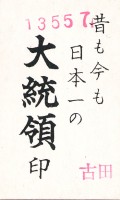 13557
昔も今も
日本一の
大統領印
古田